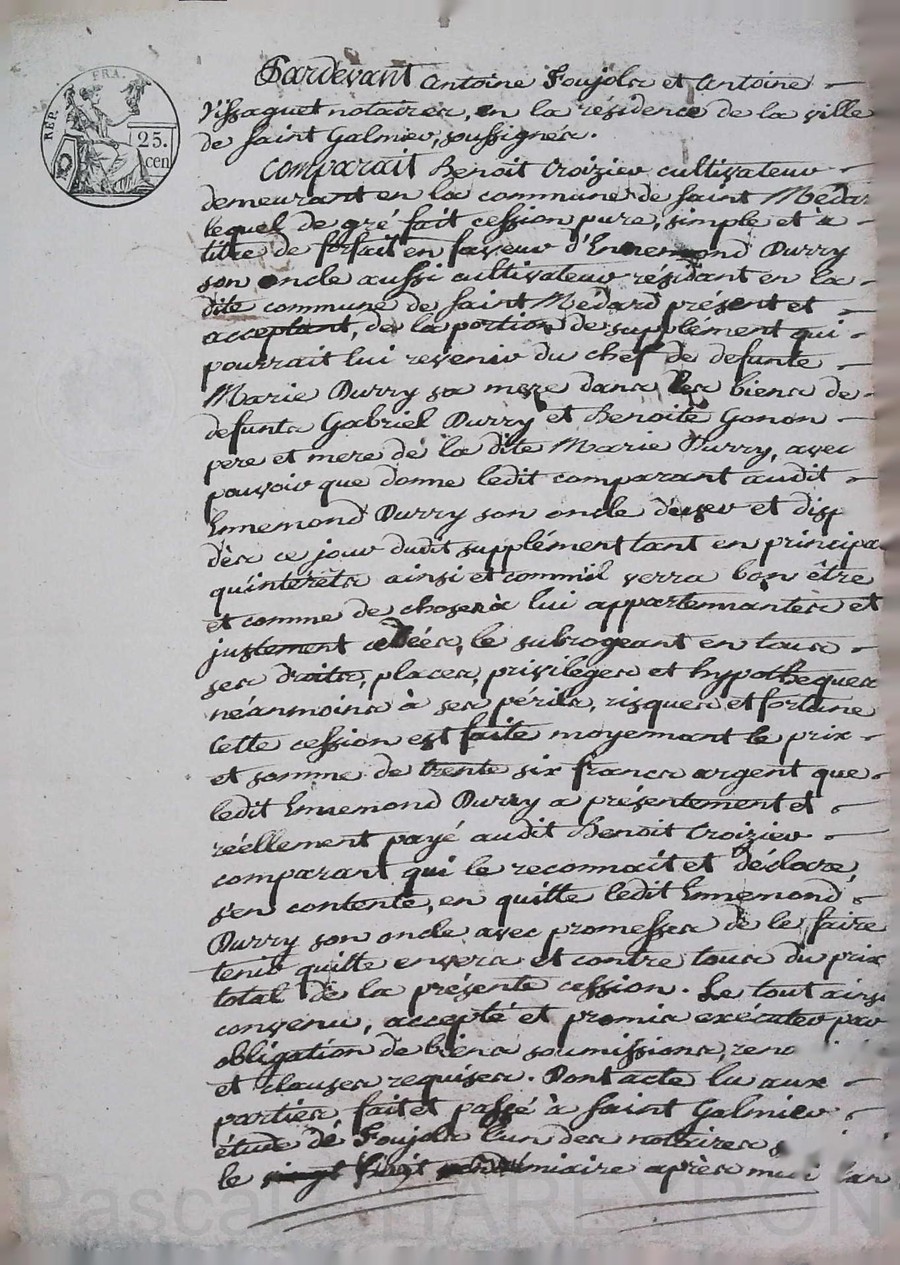 REP. FRA.
25.
cen
Pardevant Antoine Foujols et Antoine
Vissaguet notaires, en la résidence de la ville
de Saint Galmier, soussignés.
Comparait Benoit Croizier cultivateur
demeurant en la commune de Saint Médar
lequel de gré fait cession pure, simple et à
titre de forfait en faveur d'Ennemond Durry
son oncle aussi cultivateur résidant en la
dite commune de Saint Médard présent et
acceptant, de la portion de supplément qui
pourrait lui revenir du chef de defunte
Marie Durry sa mere dans les biens de
defunts Gabriel Durry et Benoite Gonon
pere et mere de la dite Marie Durry, avec
pouvoir que donne ledit comparant audit
Ennemond Durry son oncle d'user et disp
dès ce jour dudit supplément tant en principa
qu'intérêts ainsi et comm'il verra bon être
et comme de choses à lui appartennantes et
justement cédées, le subrogeant en tous
ses droits, places, privilèges et hypotheques
néanmoins à ses périls, risques et fortune
Cette cession est faite moyennant le prix
et somme de trente six francs argent que
ledit Ennemond Durry a présentement et
réellement payé audit Benoit Croizier
comparant qui le reconnait et déclare,
s'en contente, en quitte ledit Ennemond
Durry son oncle avec promesses de le faire
tenir quitte envers et contre tous du prix
total de la présente cession. Le tout ainsi
convenu, accepté et promis exécuter par
obligation de biens soumissions, reno
et clauses requises. Dont acte lu aux
parties fait et passé à Saint Galmier
étude de Foujols l'un des notaires s
le miaire après midi l'an
Pascal CHAREYRON